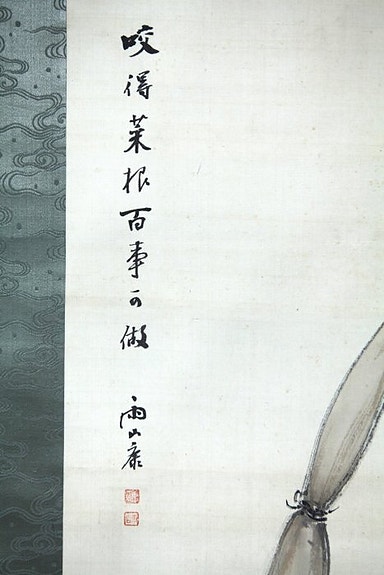 咬得菜根百事可做 雨山康